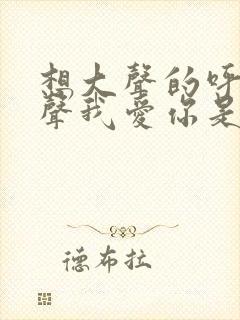 想大聲的呼
聲我愛你是
德布拉